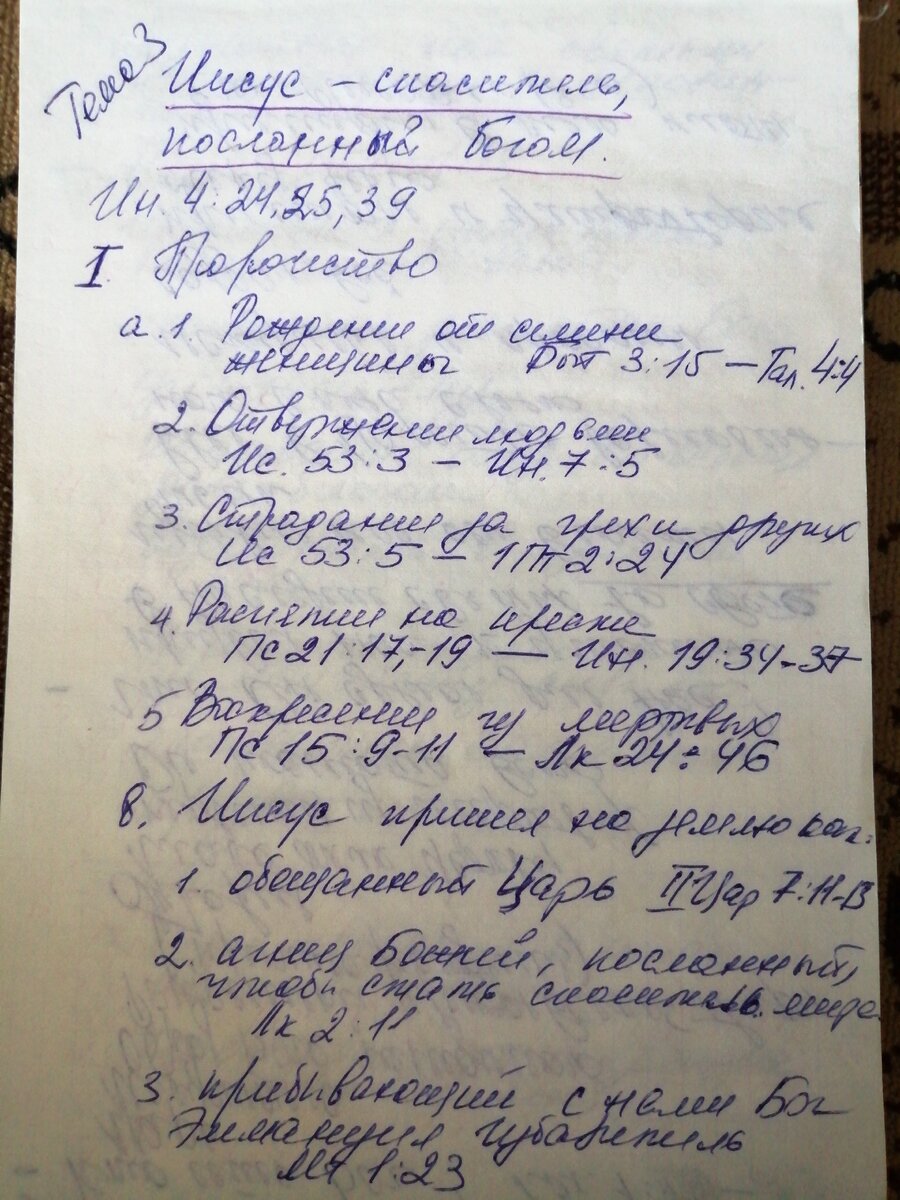 Тема 3
Иисус – спаситель,
посланный Богом.
Ин. 4:24,25,39
I. Пророчество
а. 1. Рождении от семени
женщины Быт 3:15 – Гал. 4:4
2. Отвержении людьми
Ис. 53:3 – Ин. 7:5
3. Страдании за грехи других
Ис 53:5 – 1Пт 2:24
4. Распятии на кресте
Пс 21:17,-19 — Ин. 19:34-37
5 Воскресении из мертвых
Пс 15:9-11 – Лк 24:46
в. Иисус пришел на землю как:
1. обещанный Царь II Цар 7:11-13
2. агнец Божий, посланный,
чтоби стать спасителем мира
Лк 2:11
3. прибивающий с нами Бог
Эммануил Избавитель
Мт 1:23